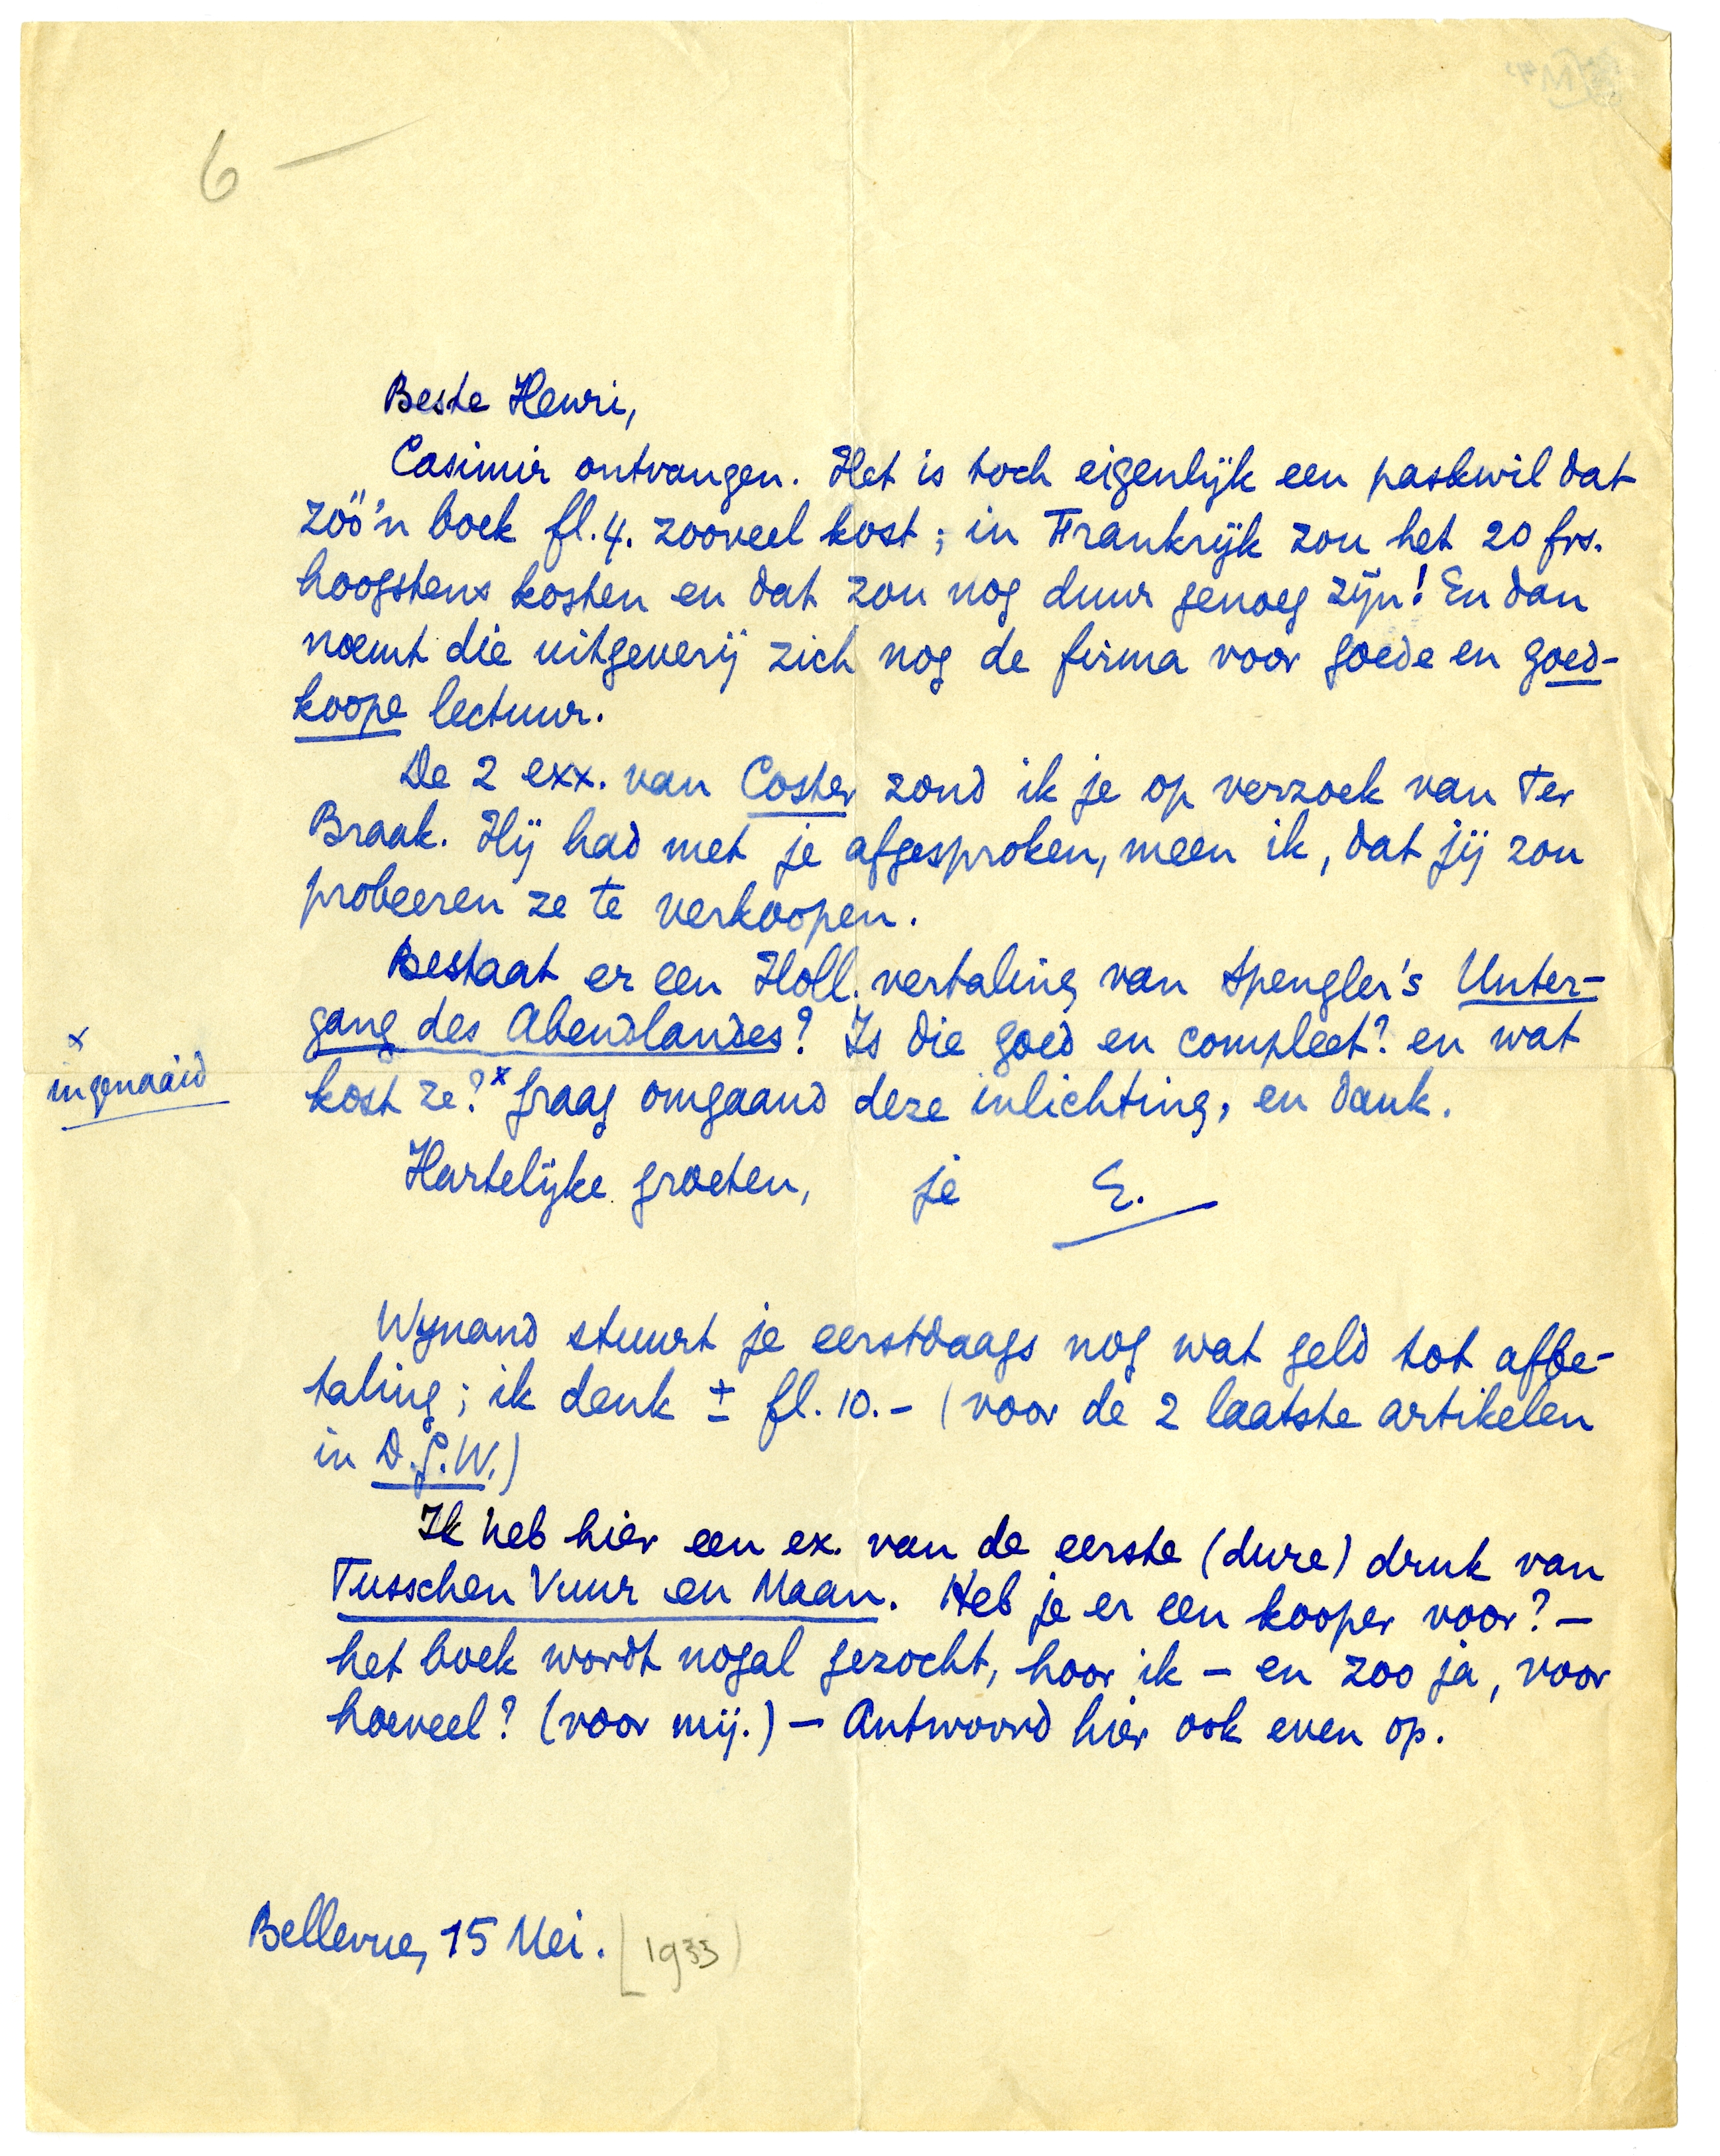 6 —
Beste Henri,
Casimir ontvangen. Het is toch eigenlijk een paskwil dat
zóó'n boek fl.4. zooveel kost; in Frankrijk zou het 20 frs.
hoogstens kosten en dat zou nog duur genoeg zijn! En dan
noemt die uitgeverij zich nog de firma voor goede en goed-
koope lectuur.
De 2 exx. van Coster zond ik je op verzoek van Ter
Braak. Hij had met je afgesproken, meen ik, dat jij zou
probeeren ze te verkoopen.
Bestaat er een Holl. vertaling van Spengler's Unter-
gang des Abendlandes? Is die goed en compleet? en wat
kost ze?x Graag omgaand deze inlichting, en dank.
x
ingenaaid
Hartelijke groeten, je E.
Wijnand stuurt je eerstdaags nog wat geld tot afbe-
taling; ik denk ± fl. 10.- (voor de 2 laatste artikelen
in D.G.W.)
Ik heb hier een ex. van de eerste (dure) druk van
Tusschen Vuur en Maan. Heb je er een kooper voor? —
het boek wordt nogal gezocht, hoor ik — en zoo ja, voor
hoeveel? (voor mij.) — Antwoord hier ook even op.
Bellevue, 15 Mei. [1933]